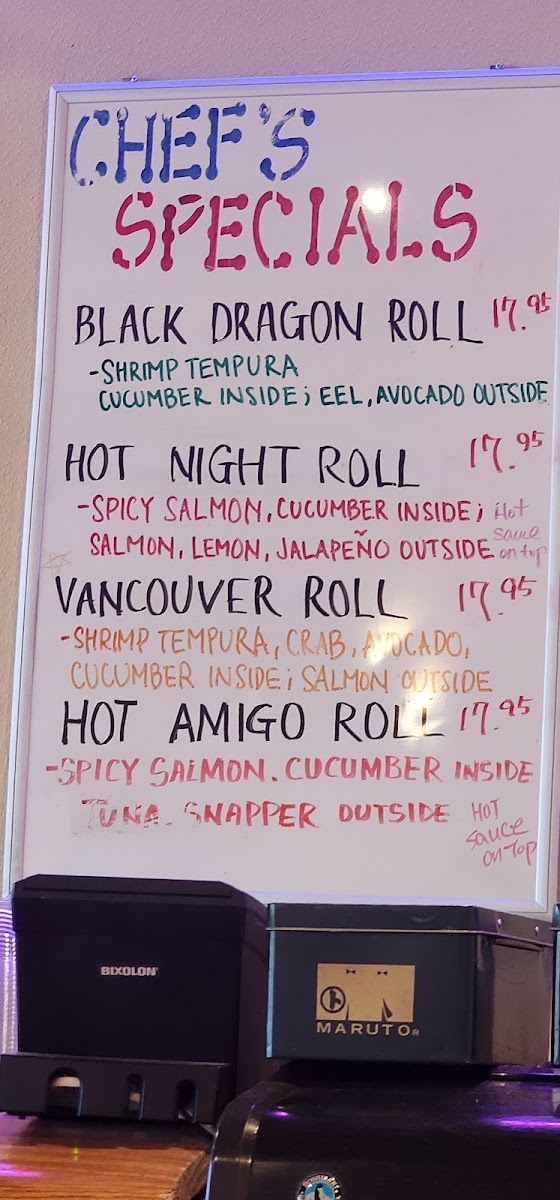 CHEF'S
SPECIALS
BLACK DRAGON ROLL 17.95
-SHRIMP TEMPURA
CUCUMBER INSIDE; EEL, AVOCADO OUTSIDE
HOT NIGHT ROLL 17.95
-SPICY SALMON, CUCUMBER INSIDE; Hot
SALMON, LEMON, JALAPEÑO OUTSIDE sauce
on top
VANCOUVER ROLL 17.95
-SHRIMP TEMPURA, CRAB, AVOCADO,
CUCUMBER INSIDE; SALMON OUTSIDE
HOT AMIGO ROLL 17.95
-SPICY SALMON. CUCUMBER INSIDE
TUNA. SNAPPER OUTSIDE HOT
sauce
on Top
BIXOLON
MARUTO